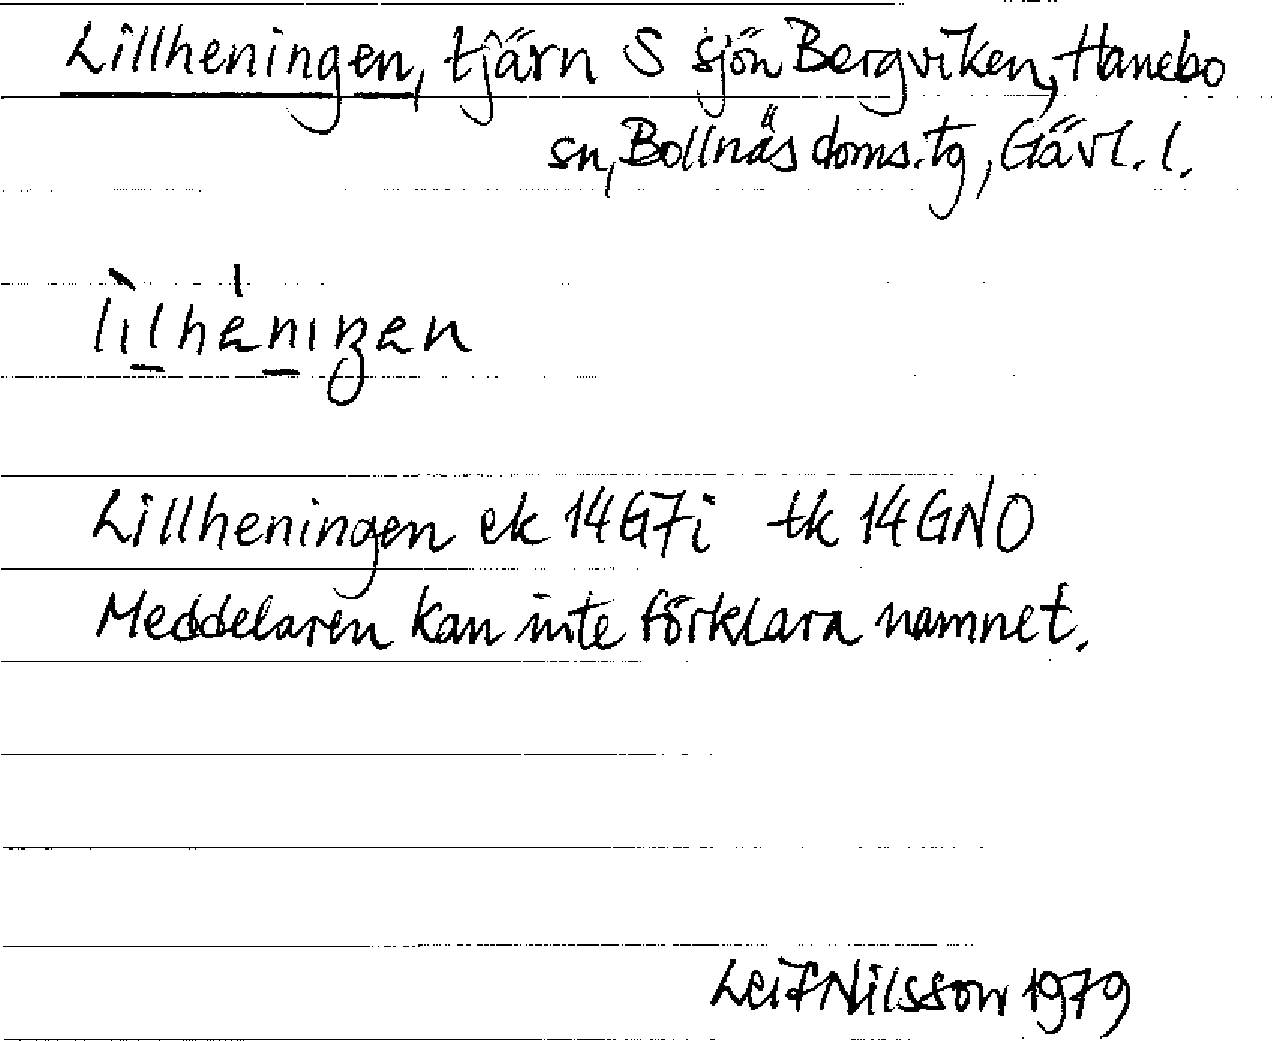 Lillheningen, tjärn S sjön Bergviken, Hanebo
sn, Bollnäs doms.tg, Gävl. l.
Lillheningen ek 14G7i tk 14GNO
Meddelaren kan inte förklara namnet.
Leif Nilsson 1979